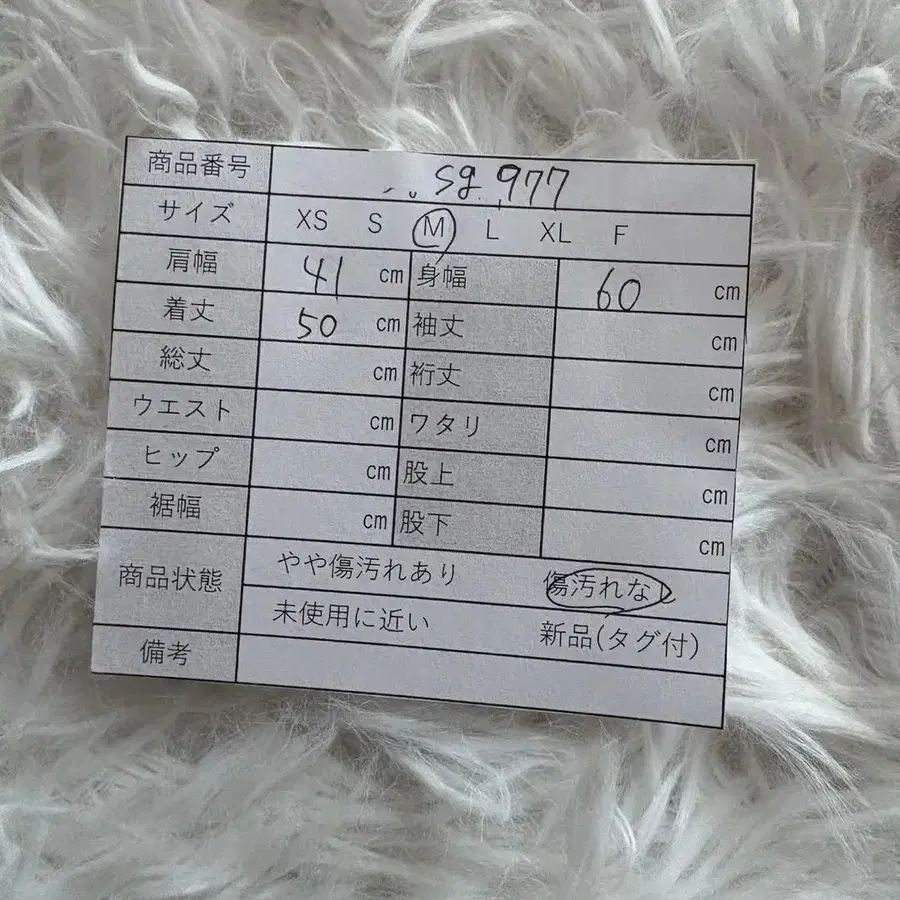 商品番号 sg.977
サイズ XS S M L XL F
肩幅 41 cm 身幅 60 cm
着丈 50 cm 袖丈 cm
総丈 cm 裄丈 cm
ウエスト cm ワタリ cm
ヒップ cm 股上 cm
裾幅 cm 股下 cm
商品状態 やや傷汚れあり 傷汚れなし
未使用に近い 新品(タグ付)
備考